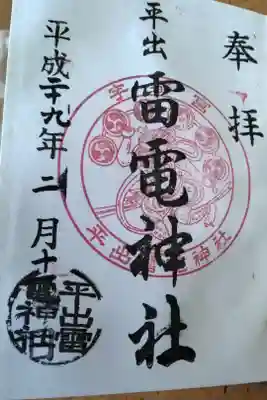 奉拝
平出
雷電神社
平成二十九年二月十
宇 宮
平出 神社
平出雷
電神社